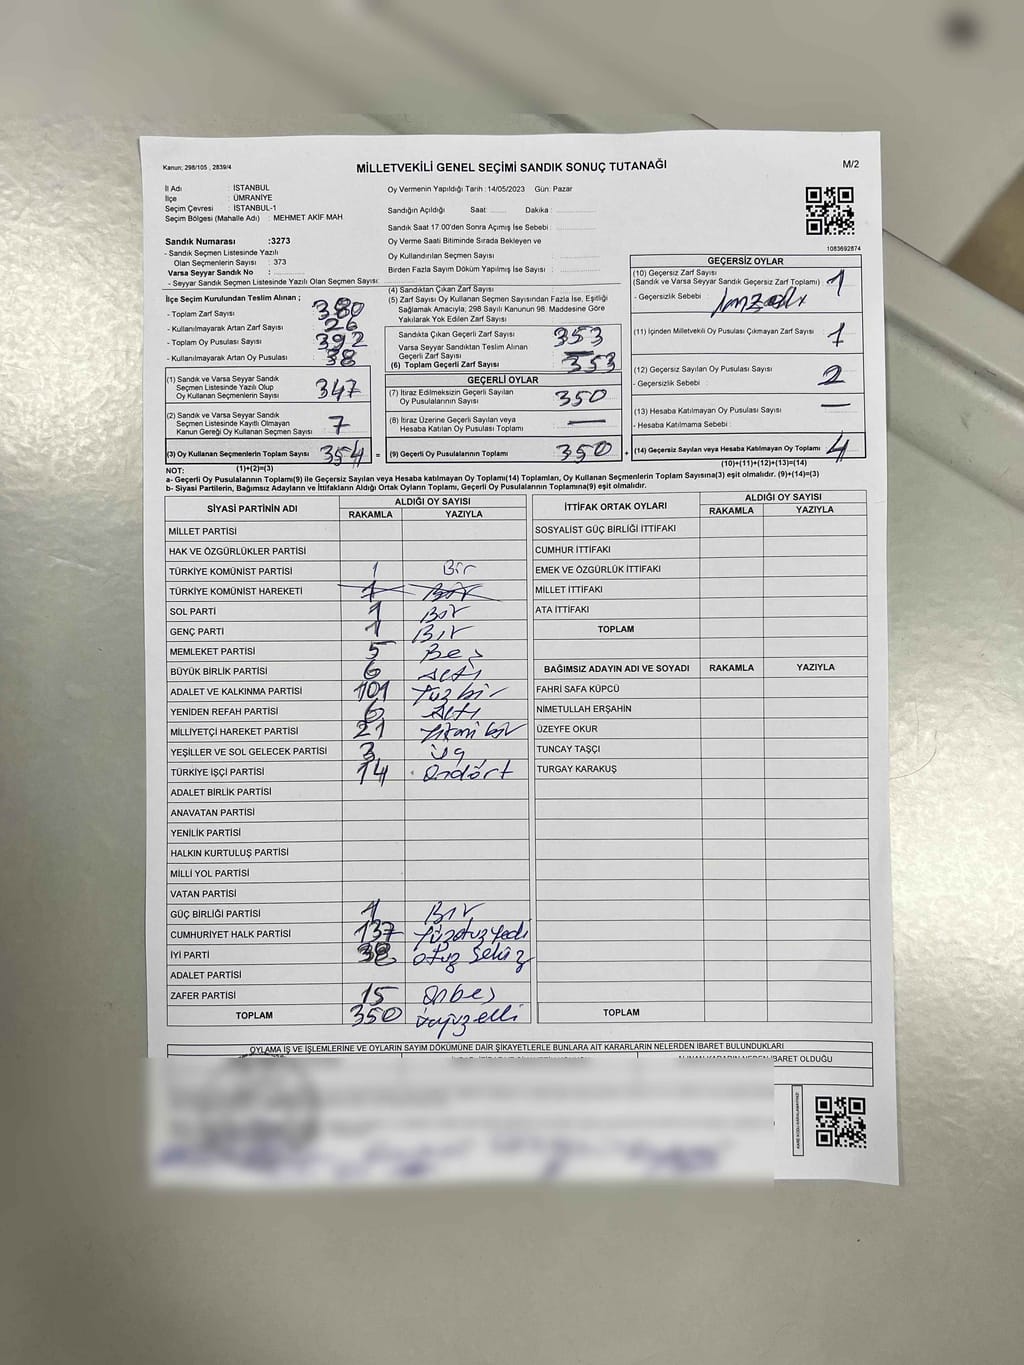 Kanun; 298/105 , 2839/4
MİLLETVEKİLİ GENEL SEÇİMİ SANDIK SONUÇ TUTANAĞI
M/2
İl Adı : İSTANBUL
İlçe : ÜMRANİYE
Seçim Çevresi : İSTANBUL-1
Seçim Bölgesi (Mahalle Adı) : MEHMET AKİF MAH.
Sandık Numarası :3273
- Sandık Seçmen Listesinde Yazılı
Olan Seçmenlerin Sayısı : 373
Varsa Seyyar Sandık No :
- Seyyar Sandık Seçmen Listesinde Yazılı Olan Seçmen Sayısı:
Oy Vermenin Yapıldığı Tarih :14/05/2023 Gün: Pazar
Sandığın Açıldığı Saat: Dakika :
Sandık Saat 17.00'den Sonra Açımış İse Sebebi :
Oy Verme Saati Bitiminde Sırada Bekleyen ve
Oy Kullandırılan Seçmen Sayısı :
Birden Fazla Sayım Döküm Yapılmış İse Sayısı :
1083692874
İlçe Seçim Kurulundan Teslim Alınan ;
- Toplam Zarf Sayısı : 380
- Kullanılmayarak Artan Zarf Sayısı : 26
- Toplam Oy Pusulası : 392
- Kullanılmayarak Artan Oy Pusulası : 38
(1) Sandık ve Varsa Seyyar Sandık
Seçmen Listesinde Yazılı Olup
Oy Kullanan Seçmenlerin Sayısı 347
(2) Sandık ve Varsa Seyyar Sandık
Seçmen Listesinde Kayıtlı Olmayan
Kanun Gereği Oy Kullanan Seçmen Sayısı 7
(3) Oy Kullanan Seçmenlerin Toplam Sayısı 354 =
(4) Sandıktan Çıkan Zarf Sayısı :
(5) Zarf Sayısı Oy Kullanan Seçmen Sayısından Fazla İse, Eşitliği
Sağlamak Amacıyla, 298 Sayılı Kanunun 98. Maddesine Göre
Yakılarak Yok Edilen Zarf Sayısı :
Sandıkta Çıkan Geçerli Zarf Sayısı : 353
Varsa Seyyar Sandıktan Teslim Alınan
Geçerli Zarf Sayısı : —
(6) Toplam Geçerli Zarf Sayısı : 353
GEÇERLİ OYLAR
(7) İtiraz Edilmeksizin Geçerli Sayılan
Oy Pusulalarının Sayısı : 350
(8) İtiraz Üzerine Geçerli Sayılan veya
Hesaba Katılan Oy Pusulası Toplamı : —
(9) Geçerli Oy Pusulalarının Toplamı : 350 +
GEÇERSİZ OYLAR
(10) Geçersiz Zarf Sayısı
(Sandık ve Varsa Seyyar Sandık Geçersiz Zarf Toplamı) : 1
- Geçersizlik Sebebi :
(11) İçinden Milletvekili Oy Pusulası Çıkmayan Zarf Sayısı : 1
(12) Geçersiz Sayılan Oy Pusulası Sayısı : 2
- Geçersizlik Sebebi :
(13) Hesaba Katılmayan Oy Pusulası Sayısı : —
- Hesaba Katılmama Sebebi :
(14) Geçersiz Sayılan veya Hesaba Katılmayan Oy Toplamı : 4
NOT: (1)+(2)=(3)
(10)+(11)+(12)+(13)=(14)
a- Geçerli Oy Pusulalarının Toplamı(9) ile Geçersiz Sayılan veya Hesaba katılmayan Oy Toplamı(14) Toplamları, Oy Kullanan Seçmenlerin Toplam Sayısına(3) eşit olmalıdır. (9)+(14)=(3)
b- Siyasi Partilerin, Bağımsız Adayların ve İttifakların Aldığı Ortak Oyların Toplamı, Geçerli Oy Pusulalarının Toplamına(9) eşit olmalıdır.
SİYASİ PARTİNİN ADI ALDIĞI OY SAYISI
RAKAMLA YAZIYLA
MİLLET PARTİSİ
HAK VE ÖZGÜRLÜKLER PARTİSİ
TÜRKİYE KOMÜNİST PARTİSİ 1 Bir
TÜRKİYE KOMÜNİST HAREKETİ 1 Bir
SOL PARTİ 1 Bir
GENÇ PARTİ 1 Bir
MEMLEKET PARTİSİ 5 Beş
BÜYÜK BİRLİK PARTİSİ 6 Altı
ADALET VE KALKINMA PARTİSİ 101 Yüz bir
YENİDEN REFAH PARTİSİ 6 Altı
MİLLİYETÇİ HAREKET PARTİSİ 21 Yirmi bir
YEŞİLLER VE SOL GELECEK PARTİSİ 3 Üç
TÜRKİYE İŞÇİ PARTİSİ 14 Ondört
ADALET BİRLİK PARTİSİ
ANAVATAN PARTİSİ
YENİLİK PARTİSİ
HALKIN KURTULUŞ PARTİSİ
MİLLİ YOL PARTİSİ
VATAN PARTİSİ
GÜÇ BİRLİĞİ PARTİSİ 1 Bir
CUMHURİYET HALK PARTİSİ 137 Yüzotuzyedi
İYİ PARTİ 38 otuz sekiz
ADALET PARTİSİ
ZAFER PARTİSİ 15 Onbeş
TOPLAM 350 üçyüzelli
İTTİFAK ORTAK OYLARI ALDIĞI OY SAYISI
RAKAMLA YAZIYLA
SOSYALİST GÜÇ BİRLİĞİ İTTİFAKI
CUMHUR İTTİFAKI
EMEK VE ÖZGÜRLÜK İTTİFAKI
MİLLET İTTİFAKI
ATA İTTİFAKI
TOPLAM
BAĞIMSIZ ADAYIN ADI VE SOYADI RAKAMLA YAZIYLA
FAHRİ SAFA KÜPCÜ
NİMETULLAH ERŞAHİN
ÜZEYFE OKUR
TUNCAY TAŞÇI
TURGAY KARAKUŞ
TOPLAM
OYLAMA İŞ VE İŞLEMLERİNE VE OYLARIN SAYIM DÖKÜMÜNE DAİR ŞİKAYETLERLE BUNLARA AİT KARARLARIN NELERDEN İBARET BULUNDUKLARI
ALINAN KARARIN NEDEN İBARET OLDUĞU